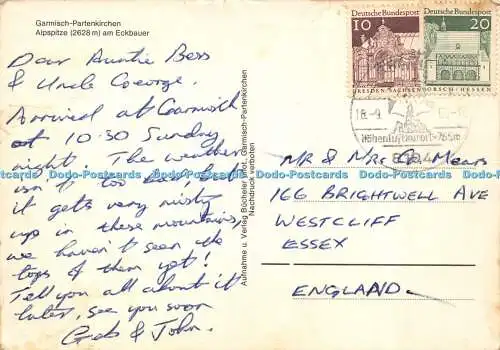 Garmisch-Partenkirchen
Alpspitze (2628 m) am Eckbauer
Dear Auntie Bess
& Uncle George.
Arrived at Garmisch
at 10:30 Sunday
night. The weather
isn't too bad, but
it gets very misty
up in these mountains,
we haven't seen the
tops of them yet!
Tell you all about it
later, see you soon
Geb & John.
Aufnahme u. Verlag Büchsler Bicht, Garmisch-Partenkirchen
Nachdruck verboten
Deutsche Bundespost
10
DRESDEN-SACHSEN
Deutsche Bundespost
20
LORSCH-HESSEN
Höhenluftkurort
MR & MRS G. Mears
166 BRIGHTWELL AVE
WESTCLIFF
ESSEX
ENGLAND
Dodo-Postcards Dodo-Postcards Dodo-Postcards Dodo-Postcards Dodo-Postcards Dodo-Postcards